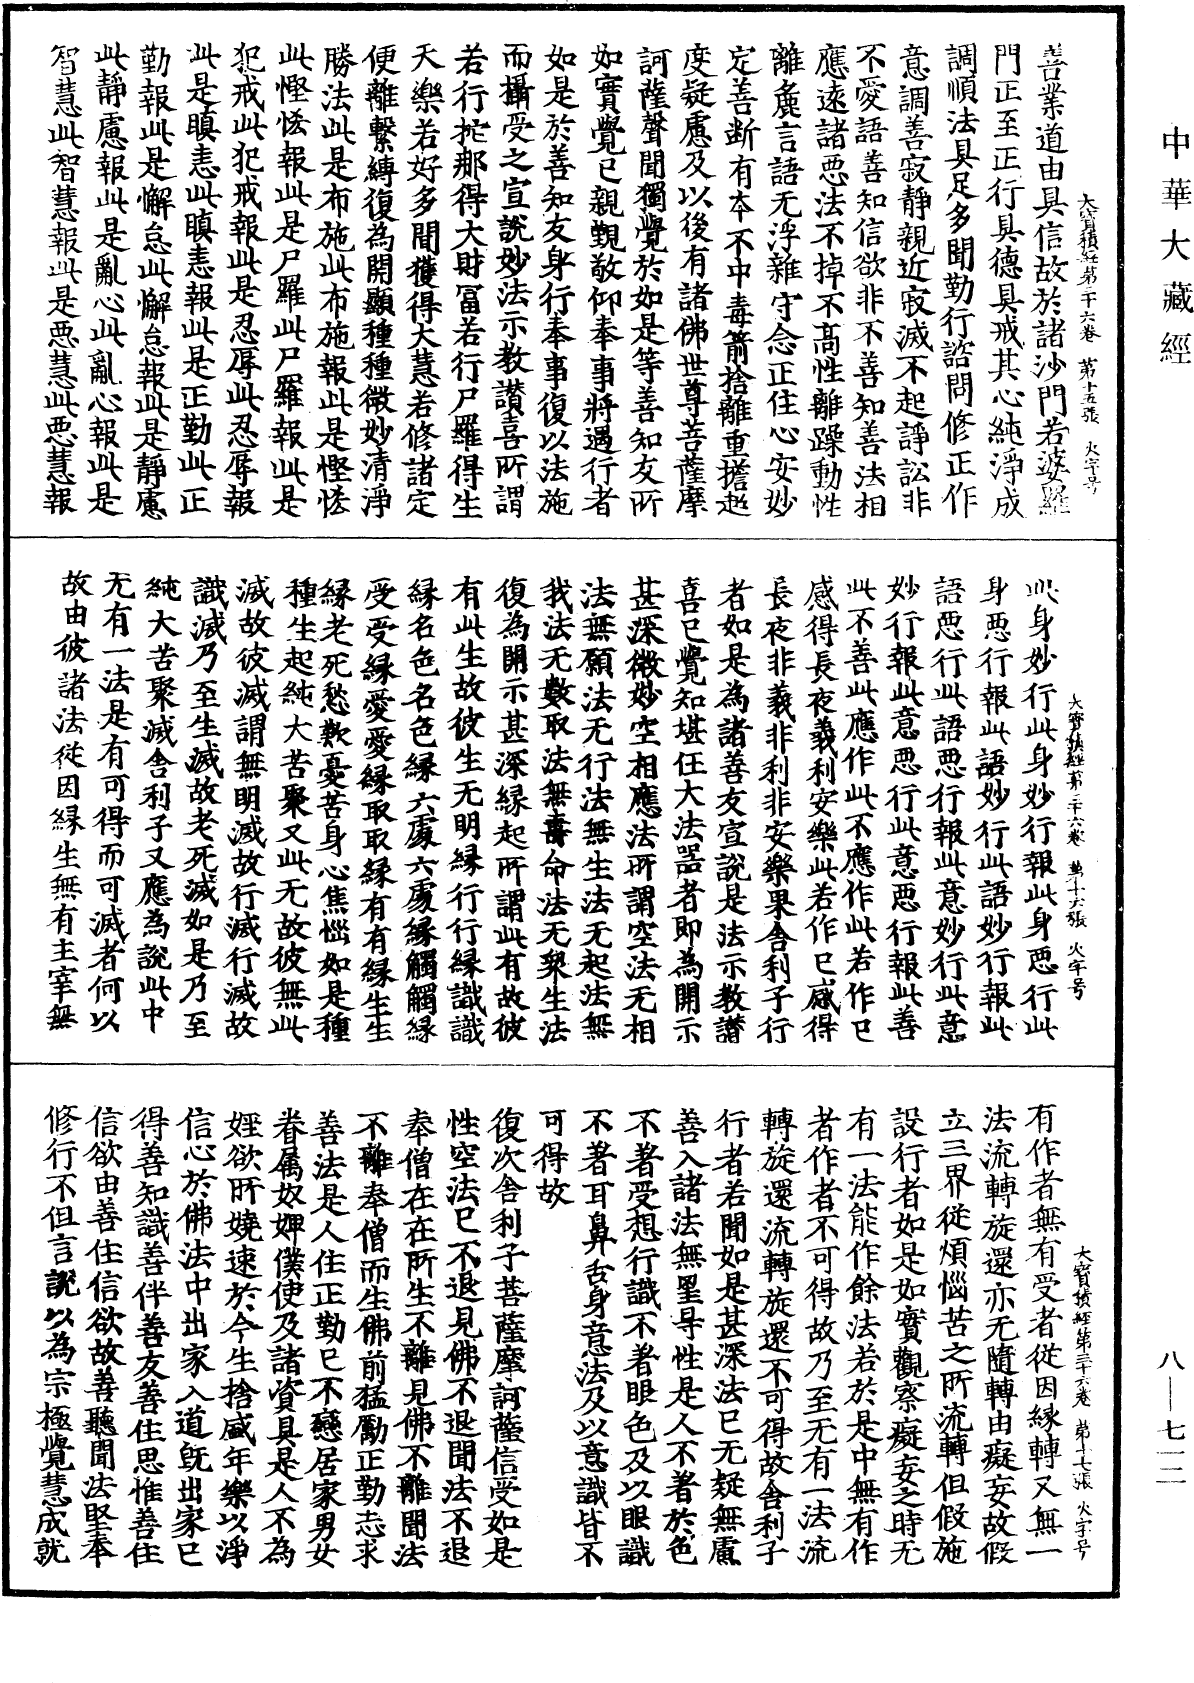 中華大藏經
大寶積經第三十六卷 第十五張 火字号
善業道由具信故於諸沙門若婆羅
門正至正行具德具戒其心純淨成
調順法具足多聞勤行諮問修正作
意調善寂靜親近寂滅不起諍訟非
不愛語善知信欲非不善知善法相
應遠諸惡法不掉不高性離躁動性
離麁言語无浮雜守念正住心安妙
定善断有本不中毒箭捨離重擔越
度疑慮及以後有諸佛世尊菩薩摩
訶薩聲聞獨覺於如是等善知友所
如實覺已親覲敬仰奉事將遇行者
如是於善知友身行奉事復以法施
而攝受之宣說妙法示教讃喜所謂
若行拕那得大財冨若行尸羅得生
天樂若好多聞獲得大慧若修諸定
便離繫縛復為開顯種種微妙清淨
勝法此是布施此布施報此是慳悋
此慳悋報此是尸羅此尸羅報此是
犯戒此犯戒報此是忍辱此忍辱報
此是瞋恚此瞋恚報此是正勤此正
勤報此是懈怠此懈怠報此是靜慮
此靜慮報此是亂心此亂心報此是
智慧此智慧報此是惡慧此惡慧報
大寶積經第三十六卷 第十六張 火字号
此身妙行此身妙行報此身惡行此
身惡行報此語妙行此語妙行報此
語惡行此語惡行報此意妙行此意
妙行報此意惡行此意惡行報此善
此不善此應作此不應作此若作已
感得長夜義利安樂此若作已感得
長夜非義非利非安樂果舍利子行
者如是為諸善友宣說是法示教讃
喜已覺知堪任大法器者即為開示
甚深微妙空相應法所謂空法无相
法無願法无行法無生法无起法無
我法无數取法無壽命法无衆生法
復為開示甚深緣起所謂此有故彼
有此生故彼生无明緣行行緣識識
緣名色名色緣六處六處緣觸觸緣
受受緣愛愛緣取取緣有有緣生生
緣老死愁歎憂苦身心焦惱如是種
種生起純大苦聚又此无故彼無此
滅故彼滅謂無明滅故行滅行滅故
識滅乃至生滅故老死滅如是乃至
純大苦聚滅舍利子又應為說此中
无有一法是有可得而可滅者何以
故由彼諸法從因緣生無有主宰無
大寶積經第三十六卷 第十七張 火字号
有作者無有受者從因緣轉又無一
法流轉旋還亦无隨轉由癡妄故假
立三界從煩惱苦之所流轉但假施
設行者如是如實觀察癡妄之時无
有一法能作餘法若於是中無有作
者作者不可得故乃至无有一法流
轉旋還流轉旋還不可得故舍利子
行者若聞如是甚深法已无疑無慮
善入諸法無罣导性是人不著於色
不著受想行識不著眼色及以眼識
不著耳鼻舌身意法及以意識皆不
可得故
復次舍利子菩薩摩訶薩信受如是
性空法已不退見佛不退聞法不退
奉僧在在所生不離見佛不離聞法
不離奉僧而生佛前猛勵正勤志求
善法是人住正勤已不戀居家男女
眷屬奴婢僕使及諸資具是人不為
婬欲所嬈速於今生捨盛年樂以淨
信心於佛法中出家入道既出家已
得善知識善伴善友善住思惟善住
信欲由善住信欲故善聽聞法堅奉
修行不但言說以為宗極覺慧成就
八—七一二